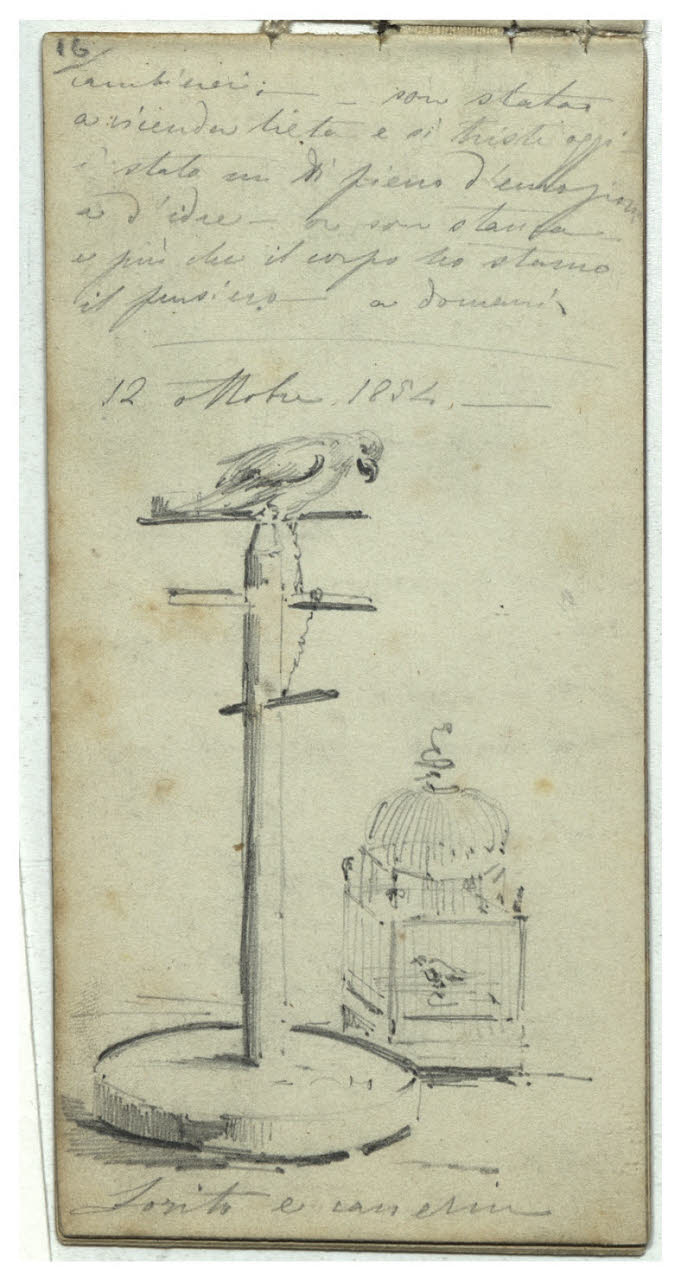 16
cambierei; — — son stata
a vicenda lieta e sì triste oggi
è stato un dì pieno d'emozioni
e d'idee — or son stanca
e più che il corpo ho stanco
il pensiero — a domani
12 ottobre. 1854. —
Lorito e canerin